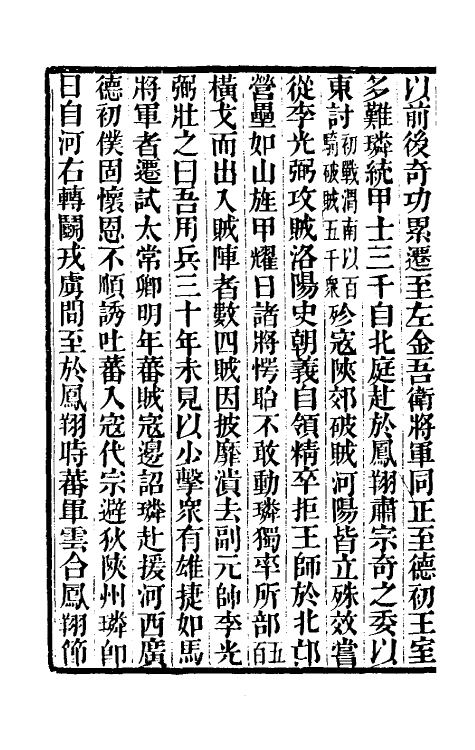 以前後奇功累遷至左金吾衛將軍同正至德初王室
多難璘統甲士三千自北庭赴於鳳翔肅宗奇之委以
東討初戰渭南以百騎破賊五千衆殄寇陝郊破賊河陽皆立殊效嘗
從李光弼攻賊洛陽史朝義自領精卒拒王師於北邙
營壘如山旌甲耀日諸將愕眙不敢動璘獨率所部五百
橫戈而出入賊陣者數四賊因披靡潰去副元帥李光
弼壯之曰吾用兵三十年未見以少擊衆有雄捷如馬
將軍者遷試太常卿明年蕃賊寇邊詔璘赴援河西廣
德初僕固懷恩不順誘吐蕃入寇代宗避狄陝州璘卽
日自河右轉鬭戎虜間至於鳳翔時蕃軍雲合鳳翔節